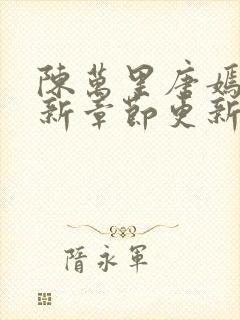 陳萬里唐嫣
新章節更新
隋永軍